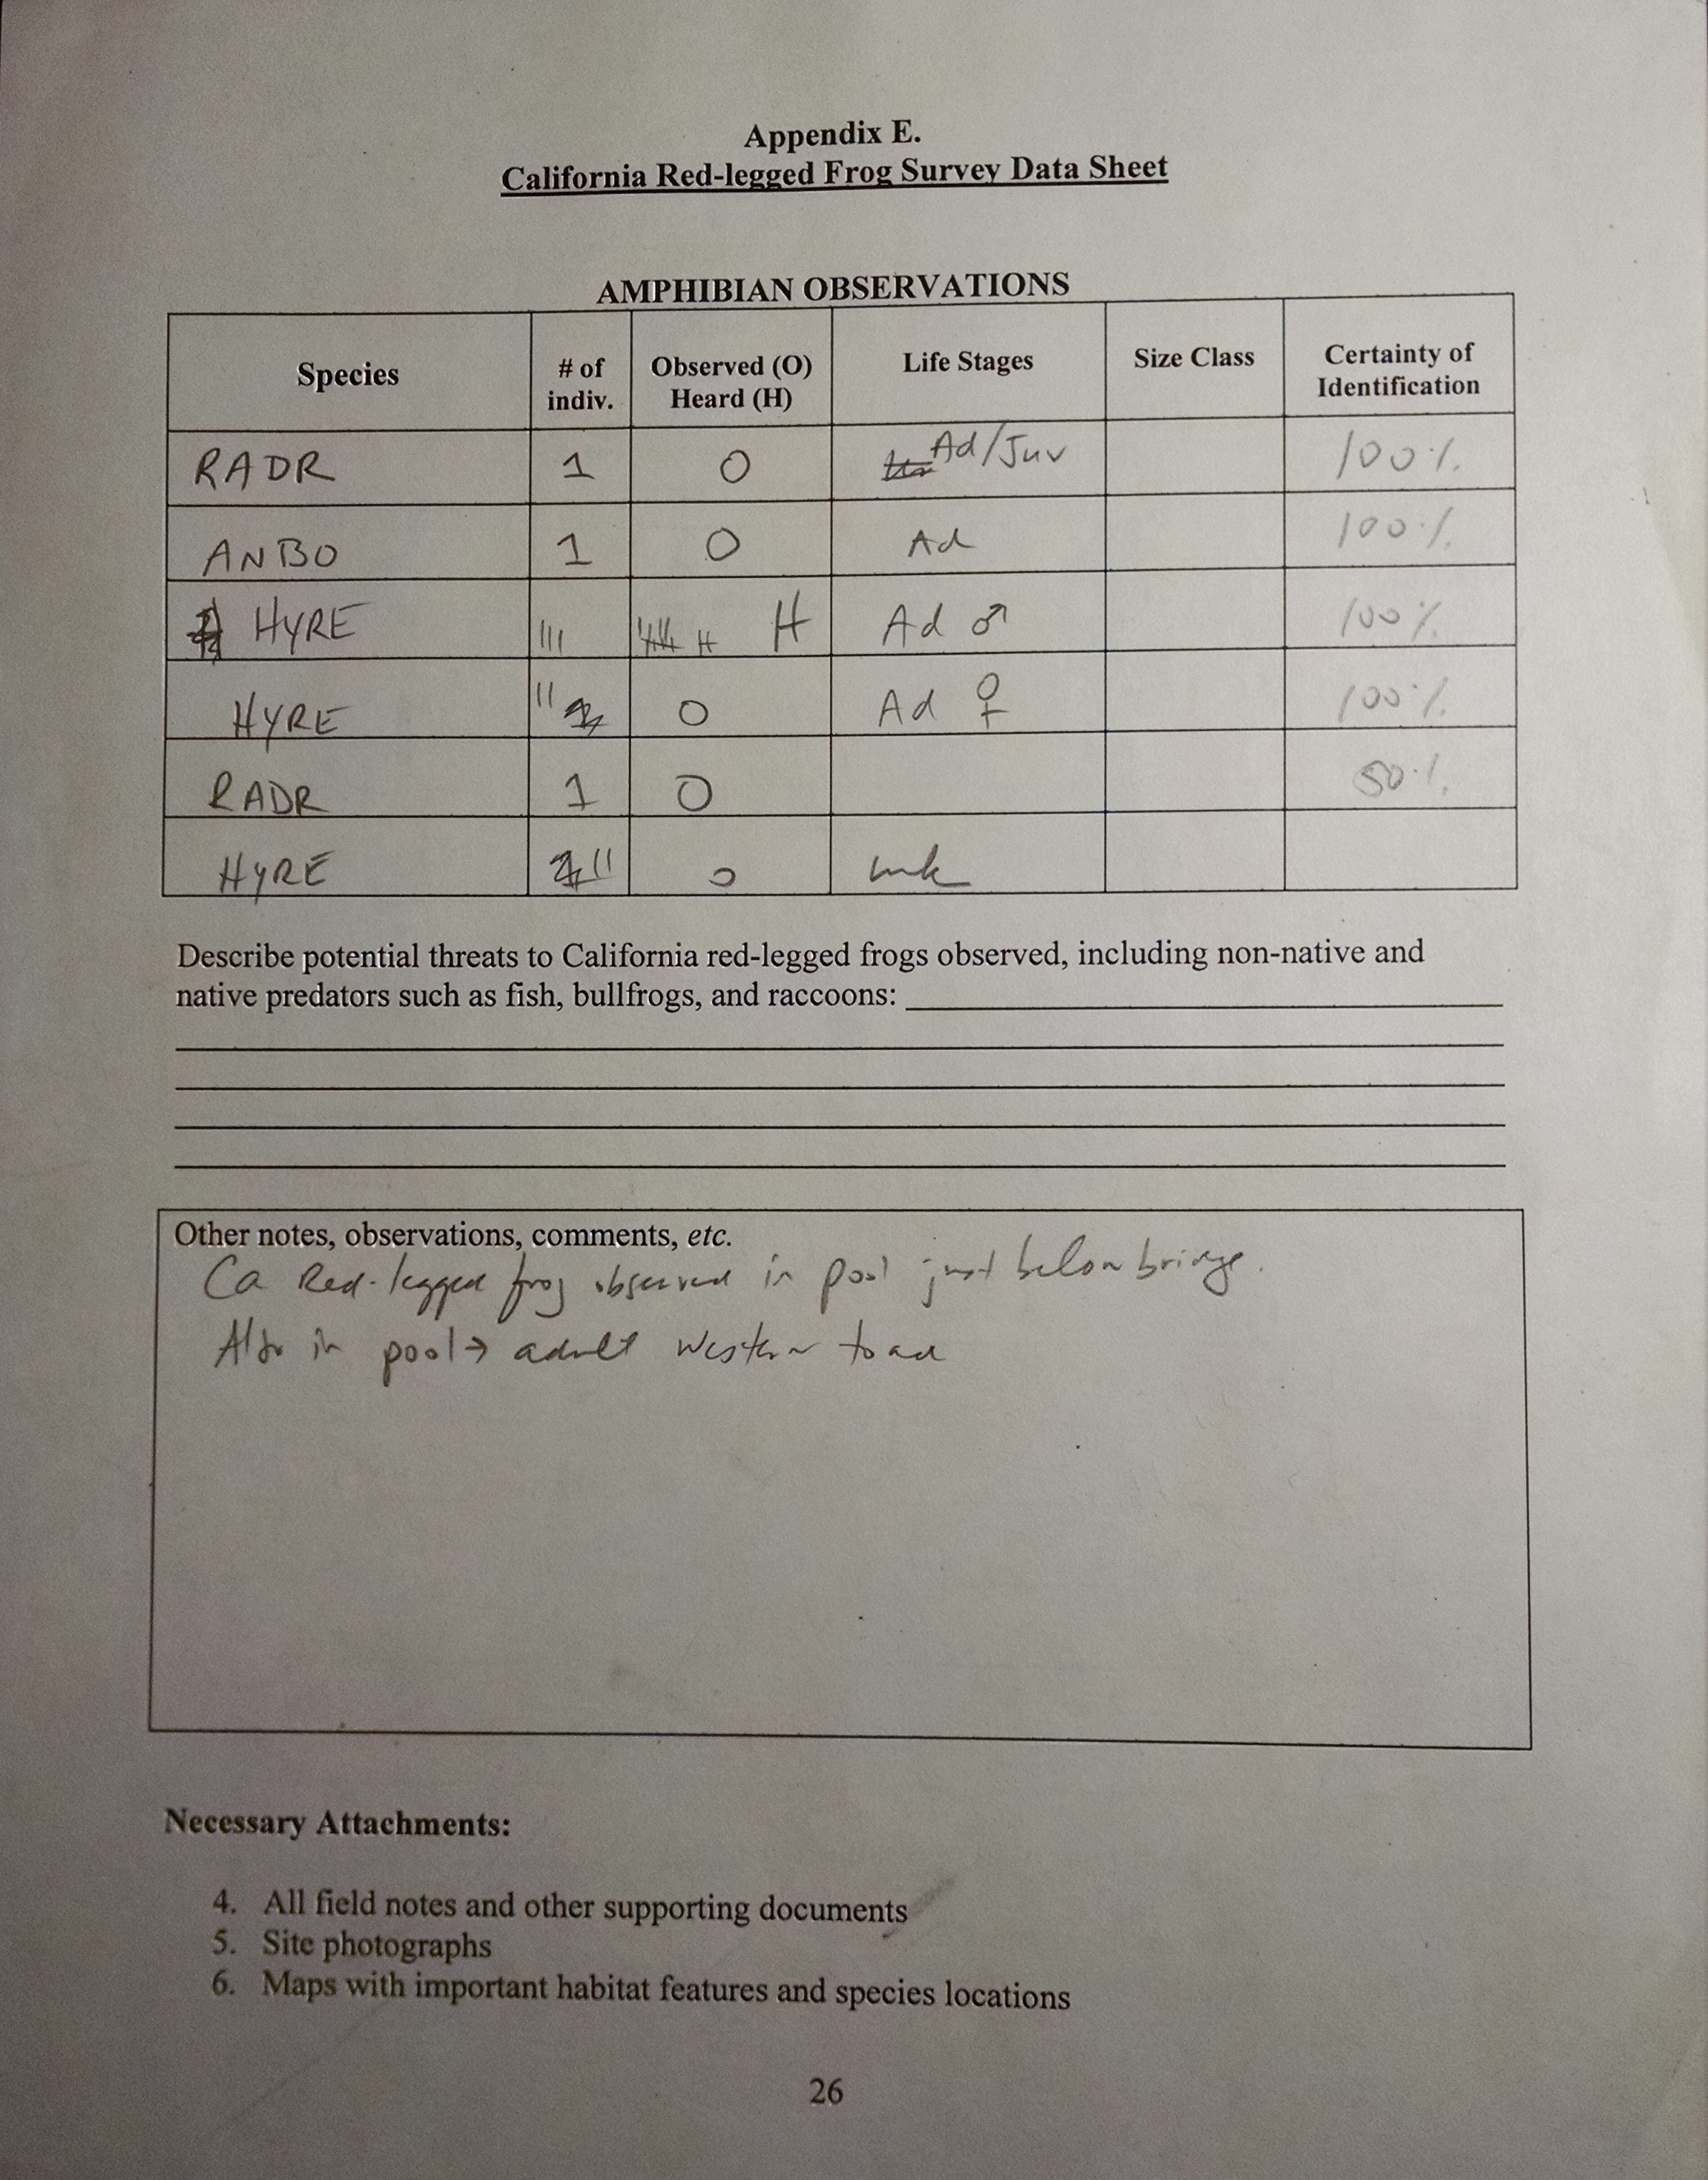 Appendix E.
California Red-legged Frog Survey Data Sheet
AMPHIBIAN OBSERVATIONS
Species # of indiv. Observed (O) Heard (H) Life Stages Size Class Certainty of Identification
RADR 1 O Ad/Juv 100%
ANBO 1 O Ad 100%
HYRE ||| H H Ad ♂ 100%
HYRE || O Ad ♀ 100%
RADR 1 O 50%
HYRE || O unk
Describe potential threats to California red-legged frogs observed, including non-native and
native predators such as fish, bullfrogs, and raccoons:
Other notes, observations, comments, etc.
Ca Red-legged frog observed in pool just below bridge.
Also in pool → adult western toad
Necessary Attachments:
4. All field notes and other supporting documents
5. Site photographs
6. Maps with important habitat features and species locations
26